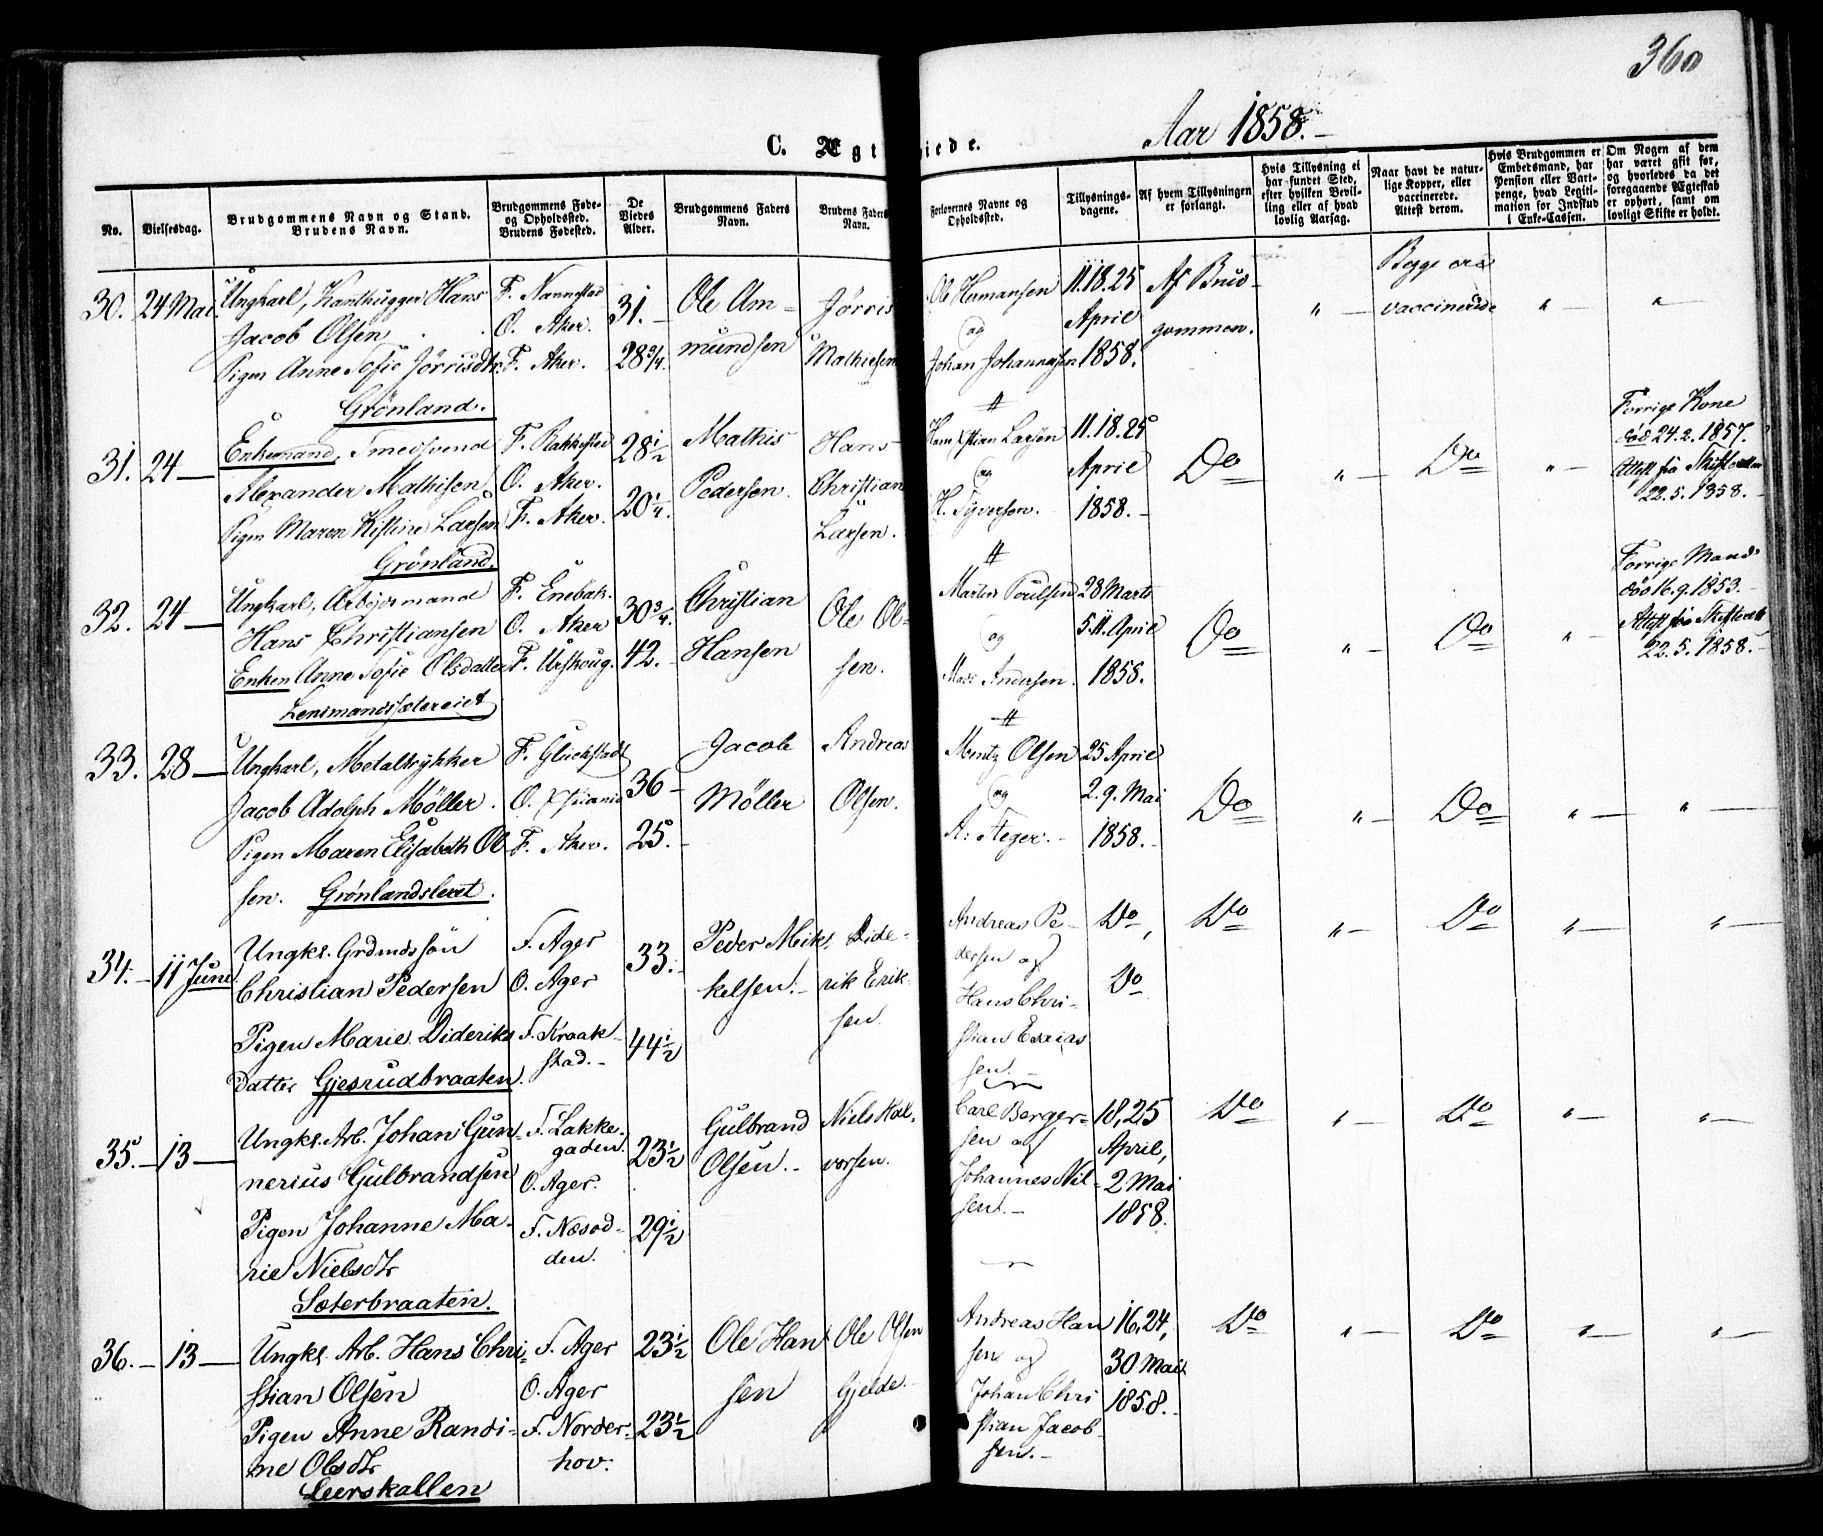 360
Aar 1858.
C. Ægteviede.
No.
Vielsesdag.
Brudgommens Navn og Stand.
Brudens Navn.
Brudgommens Føde-
og Opholdssted.
Brudens Fødested.
De
Viedes
Alder.
Brudgommens Faders
Navn.
Brudens Faders
Navn.
Forlovernes Navne og
Opholdssted.
Tillysnings-
dagene.
Af hvem Tillysningen
er forlangt.
Hvis Tillysning ei
har fundet Sted,
efter hvilken Bevil-
ling eller af hvad
lovlig Aarsag.
Naar havt de natur-
lige Kopper, eller
vaccinerede.
Attest derom.
Hvis Brudgommen er
Embedsmand, har
Pension eller Vart-
penge, hvad Legiti-
mation for Indskud
i Enke-Cassen.
Om Nogen af dem
har været gift før,
og hvorledes da det
foregaaende Ægteskab
er ophørt, samt om
lovligt Skifte er holdt.
30. 24 Mai
Ungkarl, Kanthugger Hans
Jacob Olsen
Pigen Anne Sofie Jørrisdtr.
Grönland.
F. Nannestad
O. Aker.
F. Aker.
31.
28 3/4.
Ole Am-
mundsen
Jørris
Mathiesen
Ole Hermansen
og
Johan Johannesen
11.18.25
April
1858.
Af Brud-
gommen.
" —
Begge ere
vaccinerede
" —
" —
31. 24 —
Enkemand, Smedsvend
Alexander Mathisen
Pigen Maren Kistine Larsen
Grönland.
F. Rakkestad
O. Aker.
F. Aker.
28 1/2
20 1/4.
Mathis
Pedersen.
Hans
Christian
Larsen.
Hans Xstian Larsen
og
H. Syversen.
11.18.25
April
1858. —
Do
" —
Do
" —
Forrige Kone
død 24.2.1857.
Attest fra Skifteretten
22.5.1858. —
32. 24 —
Ungkarl, Arbejdsmand
Hans Christiansen
Enken Anne Sofie Olsdatter
Lensmandssætereiet
F. Enebak.
O. Aker
F. Urskoug.
30 3/4.
42.
Christian
Hansen
Ole Ol-
sen.
Martin Poulsen
og
Mads Andersen.
28 Marts
5.11. April
1858.
Do
" —
Do
" —
Forrige Mand
død 16.9.1853. —
Attest fra Skifterett
22.5.1858. —
33. 28 —
Ungkarl, Metaltrykker
Jacob Adolph Møller.
Pigen Maren Elisabeth Ol-
sen. Grønlandsleret.
F. Glückstad
O. Xstiania
F. Aker.
36 —
25.
Jacob
Møller
Andreas
Olsen.
Mentz Olsen
og
A. Æger. —
25 April
2.9. Mai
1858. —
Do
" —
Do
" —
" —
34. — 11 Juni
Ungkl. Grdmdssøn
Christian Pedersen
Pigen Marie Dideriks
Datter Gjesrudbraaten.
F. Ager
O. Ager
F. Kraak-
stad. —
33. —
44 1/2
Peder Mik-
kelsen. —
Dide-
rik Erik-
sen.
Andreas Pe-
dersen og
Hans Chri-
stian Esaias
sen. —
Do,
Do
Do
" —
Do
" —
" —
35. — 13 —
Ungkl. Arb. Johan Gun-
nerius Gulbrandsen
Pigen Johanne Ma-
rie Nielsdtr
Sæterbraaten.
F. Lakke-
gaden.
O. Ager.
F. Næsod-
den.
23 1/2
29 1/2
Gulbrand
Olsen. —
Niels Hal-
vorsen.
Carl Berger-
sen og
Johannes Nil-
sen. —
18, 25
April,
2 Mai
1858.
Do
" —
Do
" —
" —
36. — 13 —
Ungkl. Arb. Hans Chri-
stian Olsen
Pigen Anne Randi-
ne Olsdtr
Leerskallen
F. Ager
O. Ager
F. Norder-
hov.
23 1/2
23 1/2
Ole Han
sen
Ole Olsen
Gjelde. —
Andreas Han
sen og
Johan Chri
stian Jacob
sen. —
16, 24,
30 Mai
1858. —
Do
" —
Do
" —
" —